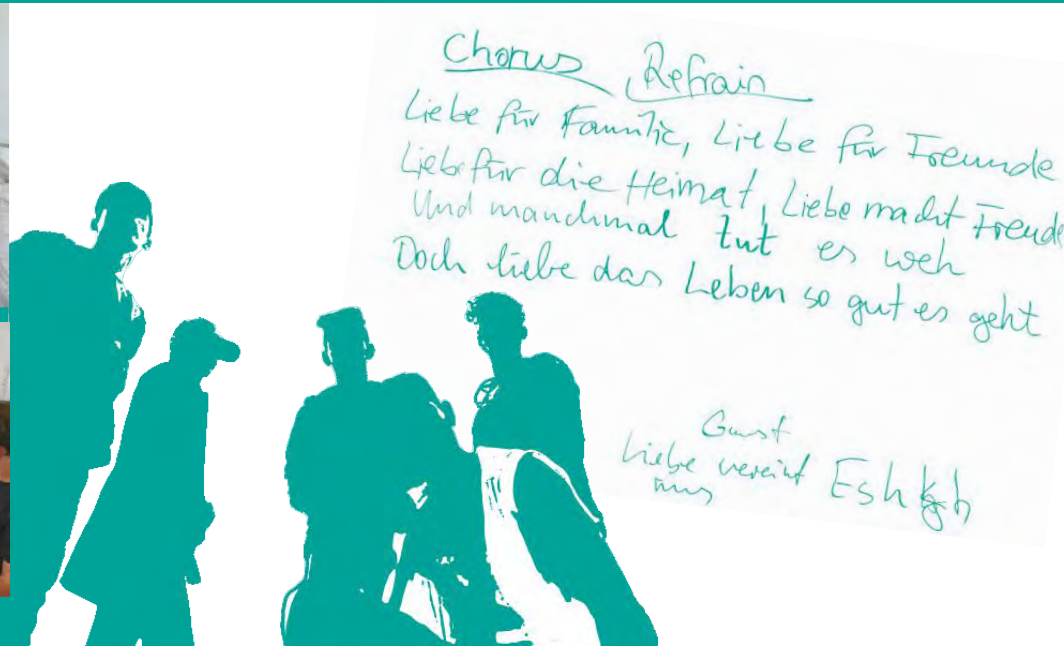 Chorus Refrain
Liebe für Familie, Liebe für Freunde
Liebe für die Heimat, Liebe macht Freude
Und manchmal tut es weh
Doch liebe das Leben so gut es geht
Liebe vereint
uns